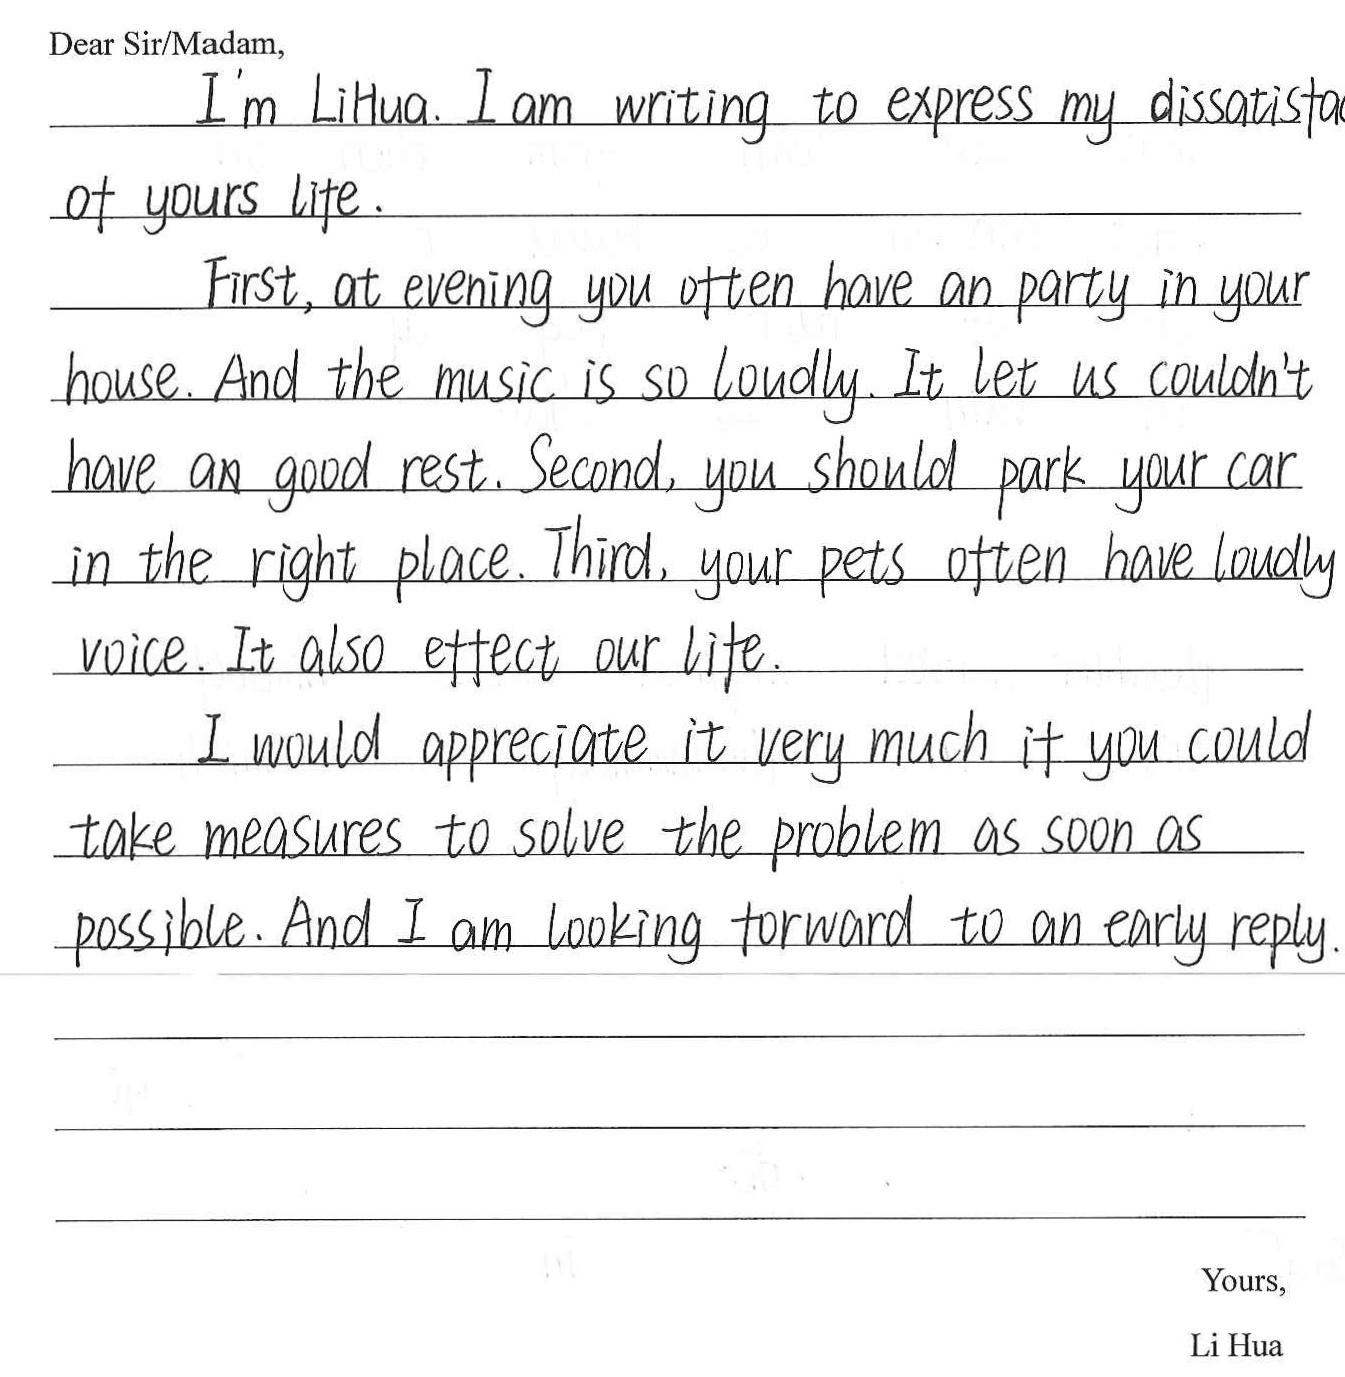 Dear Sir/Madam,
I'm LiHua. I am writing to express my
of yours life.
First, at evening you often have an party in your
house. And the music is so loudly. It let us couldn't
have an good rest. Second, you should park your car
in the right place. Third, your pets often have loudly
voice. It also effect our life.
I would appreciate it very much if you could
take measures to solve the problem as soon as
possible. And I am looking forward to an early reply.
Yours,
Li Hua